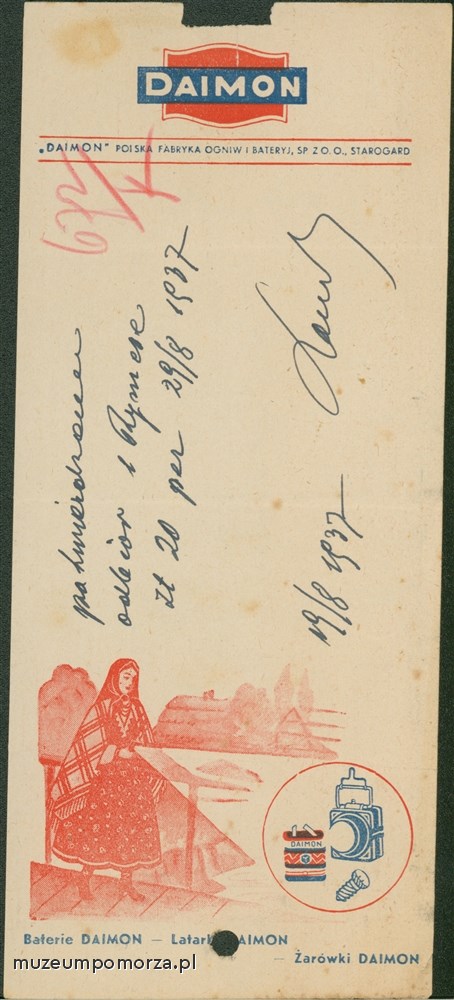 DAIMON
„DAIMON" POLSKA FABRYKA OGNIW I BATERYJ, SP Z O. O., STAROGARD
odbiór 1 Rymese
zł 20 per 29/8 1937
19/8 1937
DAIMON
Baterie DAIMON — Latarki DAIMON
— Żarówki DAIMON
muzeumpomorza.pl